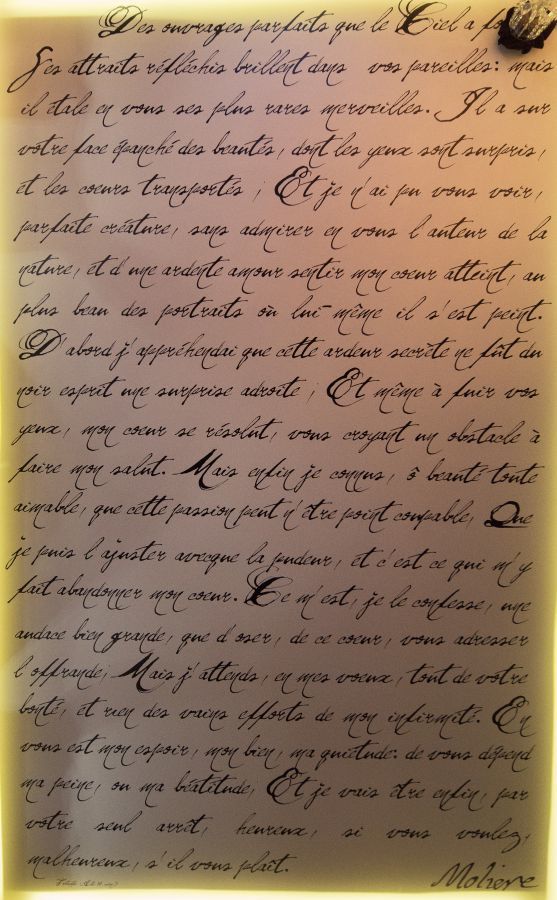 Des ouvrages parfaits que le Ciel a
Ses attraits réfléchis brillent dans vos pareilles: mais
il étale en vous ses plus rares merveilles. Il a sur
votre face épanché des beautés, dont les yeux sont surpris,
et les coeurs transportés ; Et je n'ai pu vous voir,
parfaite créature, sans admirer en vous l'auteur de la
nature, et d'une ardente amour sentir mon coeur atteint, au
plus beau des portraits où lui-même il s'est peint.
D'abord j'appréhendai que cette ardeur secrète ne fût du
noir esprit une surprise adroite ; Et même à fuir vos
yeux, mon coeur se résolut, vous croyant un obstacle à
faire mon salut. Mais enfin je connus, ô beauté toute
aimable, que cette passion peut n'être point coupable, Que
je puis l'ajuster avecque la pudeur, et c'est ce qui m'y
fait abandonner mon coeur. Ce m'est, je le confesse, une
audace bien grande, que d'oser, de ce coeur, vous adresser
l'offrande; Mais j'attends, en mes voeux, tout de votre
bonté, et rien des vains efforts de mon infirmité. En
vous est mon espoir, mon bien, ma quiétude: de vous dépend
ma peine, ou ma béatitude; Et je vais être enfin, par
votre seul arrêt, heureux, si vous voulez,
malheureux, s'il vous plaît.
Moliere